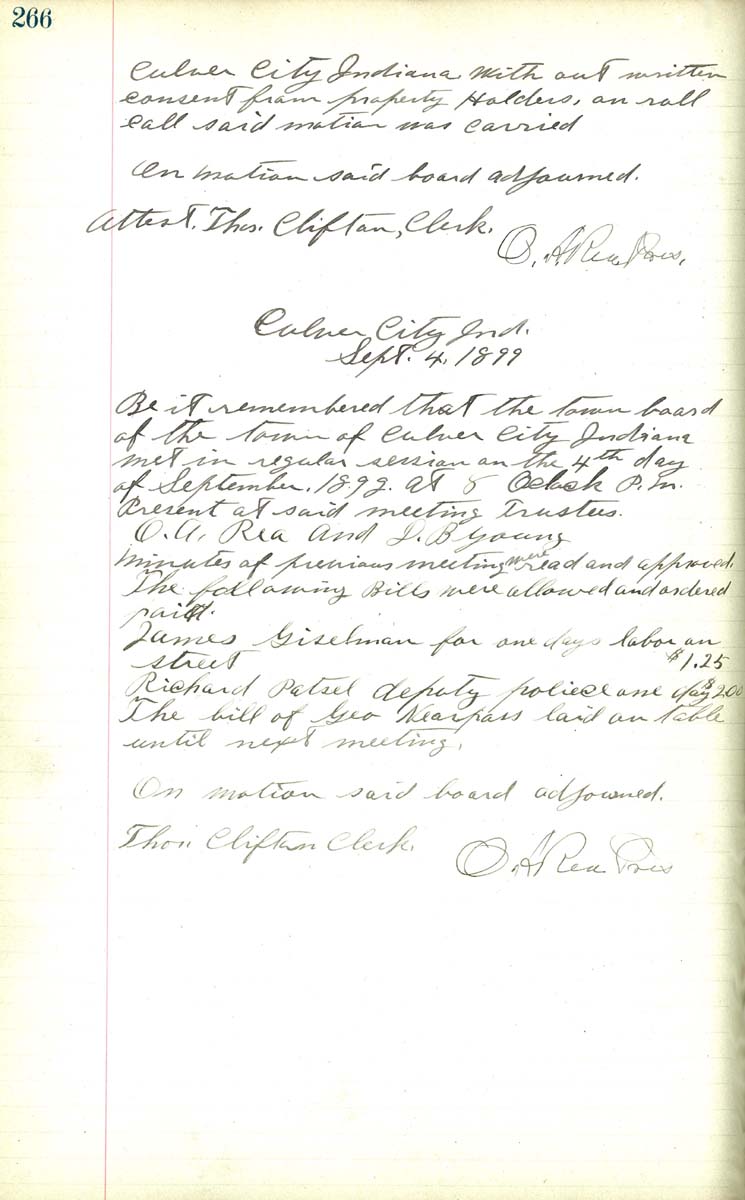 266
Culver City Indiana With out written
consent from property Holders, on roll
call said motion was carried
On motion said board adjourned.
Attest. Thos. Clifton, Clerk.
O. A. Rea Pres.
Culver City Ind.
Sept. 4. 1899
Be it remembered that the town board
of the town of Culver City Indiana
met in regular session on the 4th day
of September. 1899. at 8 Oclock P.M.
Present at said meeting Trustees.
O. A. Rea And J. B Young
minutes of previous meeting were read and approved.
The following Bills were allowed and ordered
paid.
James Giselman for one days labor on
street $1.25
Richard Patsel deputy police one day $2.00
The bill of Geo Nearpass laid on table
until next meeting.
On motion said board adjourned.
Thos. Clifton Clerk.
O. A Rea Pres